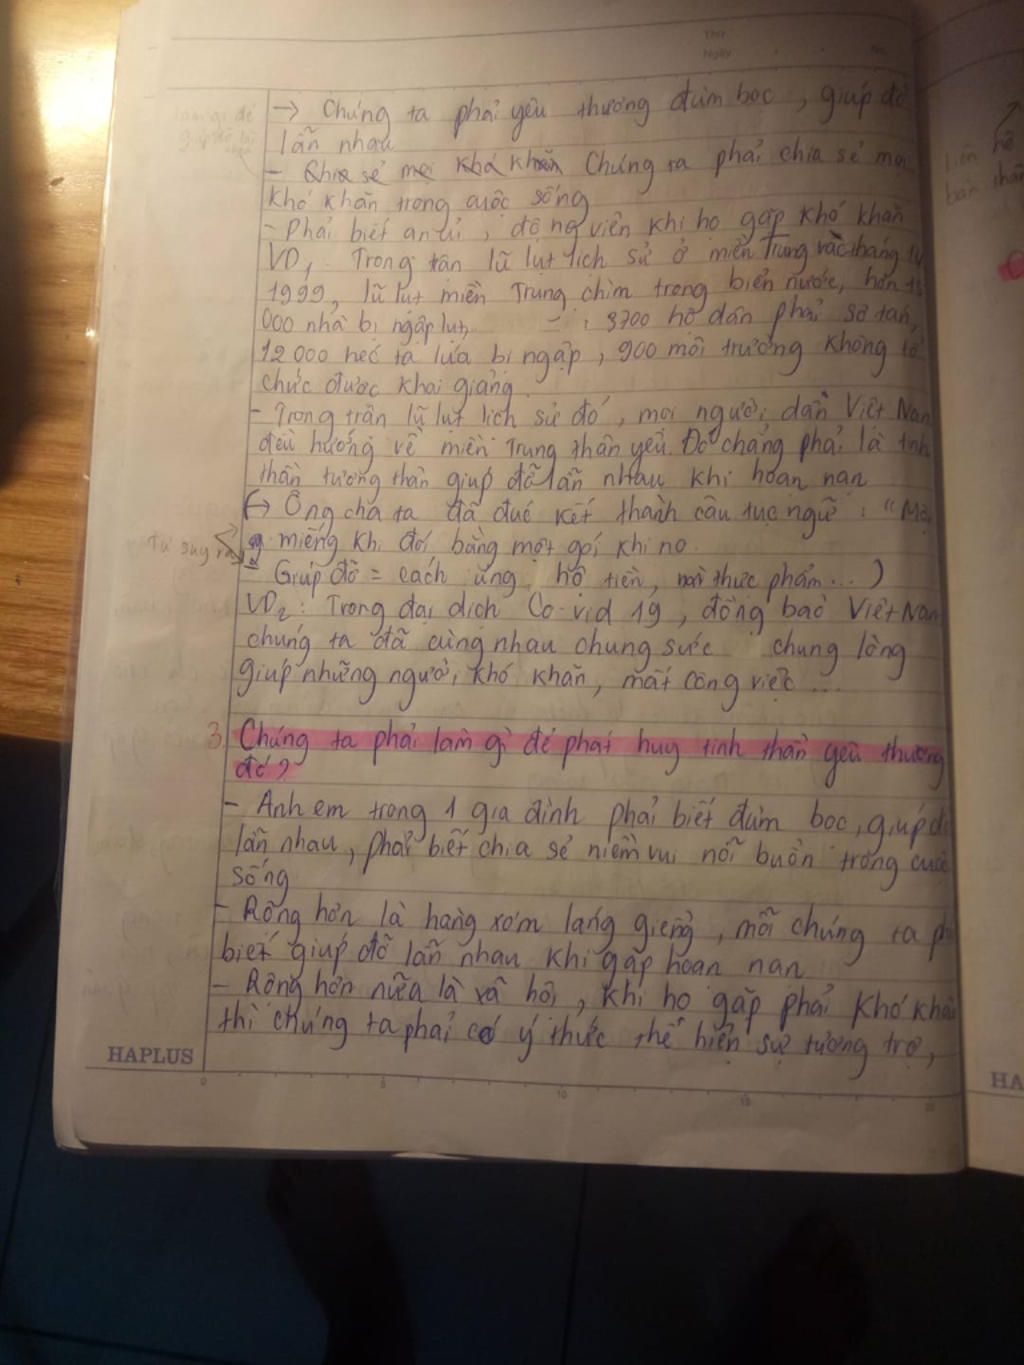 Thứ
Ngày No.
→ Chúng ta phải yêu thương đùm bọc, giúp đỡ
lẫn nhau
- Chia sẻ mọi khó khăn Chúng ta phải chia sẻ mọi
khó khăn trong cuộc sống
- Phải biết an ủi, động viên khi họ gặp khó khăn
VD1 Trong trận lũ lụt lịch sử ở miền Trung vào tháng
1999, lũ lụt miền Trung chìm trong biển nước, hơn
000 nhà bị ngập lụt, 3700 hộ dân phải sơ tán,
12 000 héc ta lúa bị ngập, 900 môi trường không tổ
chức được khai giảng
- Trong trận lũ lụt lịch sử đó, mọi người dân Việt Nam
đều hướng về miền Trung thân yêu. Đó chẳng phải là tinh
thần tương thân giúp đỡ lẫn nhau khi hoạn nạn
(→ Ông cha ta đã đúc kết thành câu tục ngữ: "Một
miếng khi đói bằng một gói khi no
Từ suy ra
- Giúp đỡ = cách ủng hộ tiền, mì thực phẩm...)
VD2: Trong đại dịch Co-vid 19, đồng bào Việt Nam
chúng ta đã cùng nhau chung sức chung lòng
giúp những người khó khăn, mất công việc ...
3. Chúng ta phải làm gì để phát huy tinh thần yêu thương
đó?
- Anh em trong 1 gia đình phải biết đùm bọc, giúp đỡ
lẫn nhau, phải biết chia sẻ niềm vui nỗi buồn trong cuộc
sống
- Rộng hơn là hàng xóm láng giềng, mỗi chúng ta phải
biết giúp đỡ lẫn nhau khi gặp hoạn nạn
- Rộng hơn nữa là xã hội, khi họ gặp phải khó khăn
thì chúng ta phải có ý thức thể hiện sự tương trợ,
HAPLUS
0 5 10 15 20
liên hệ
bản thân
HA